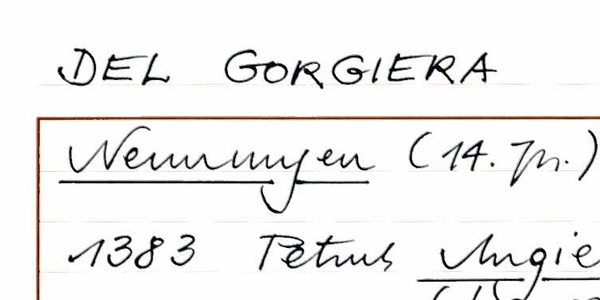 DEL GORGIERA
Nennungen (14. Jh.)
1383 Petrus Angie